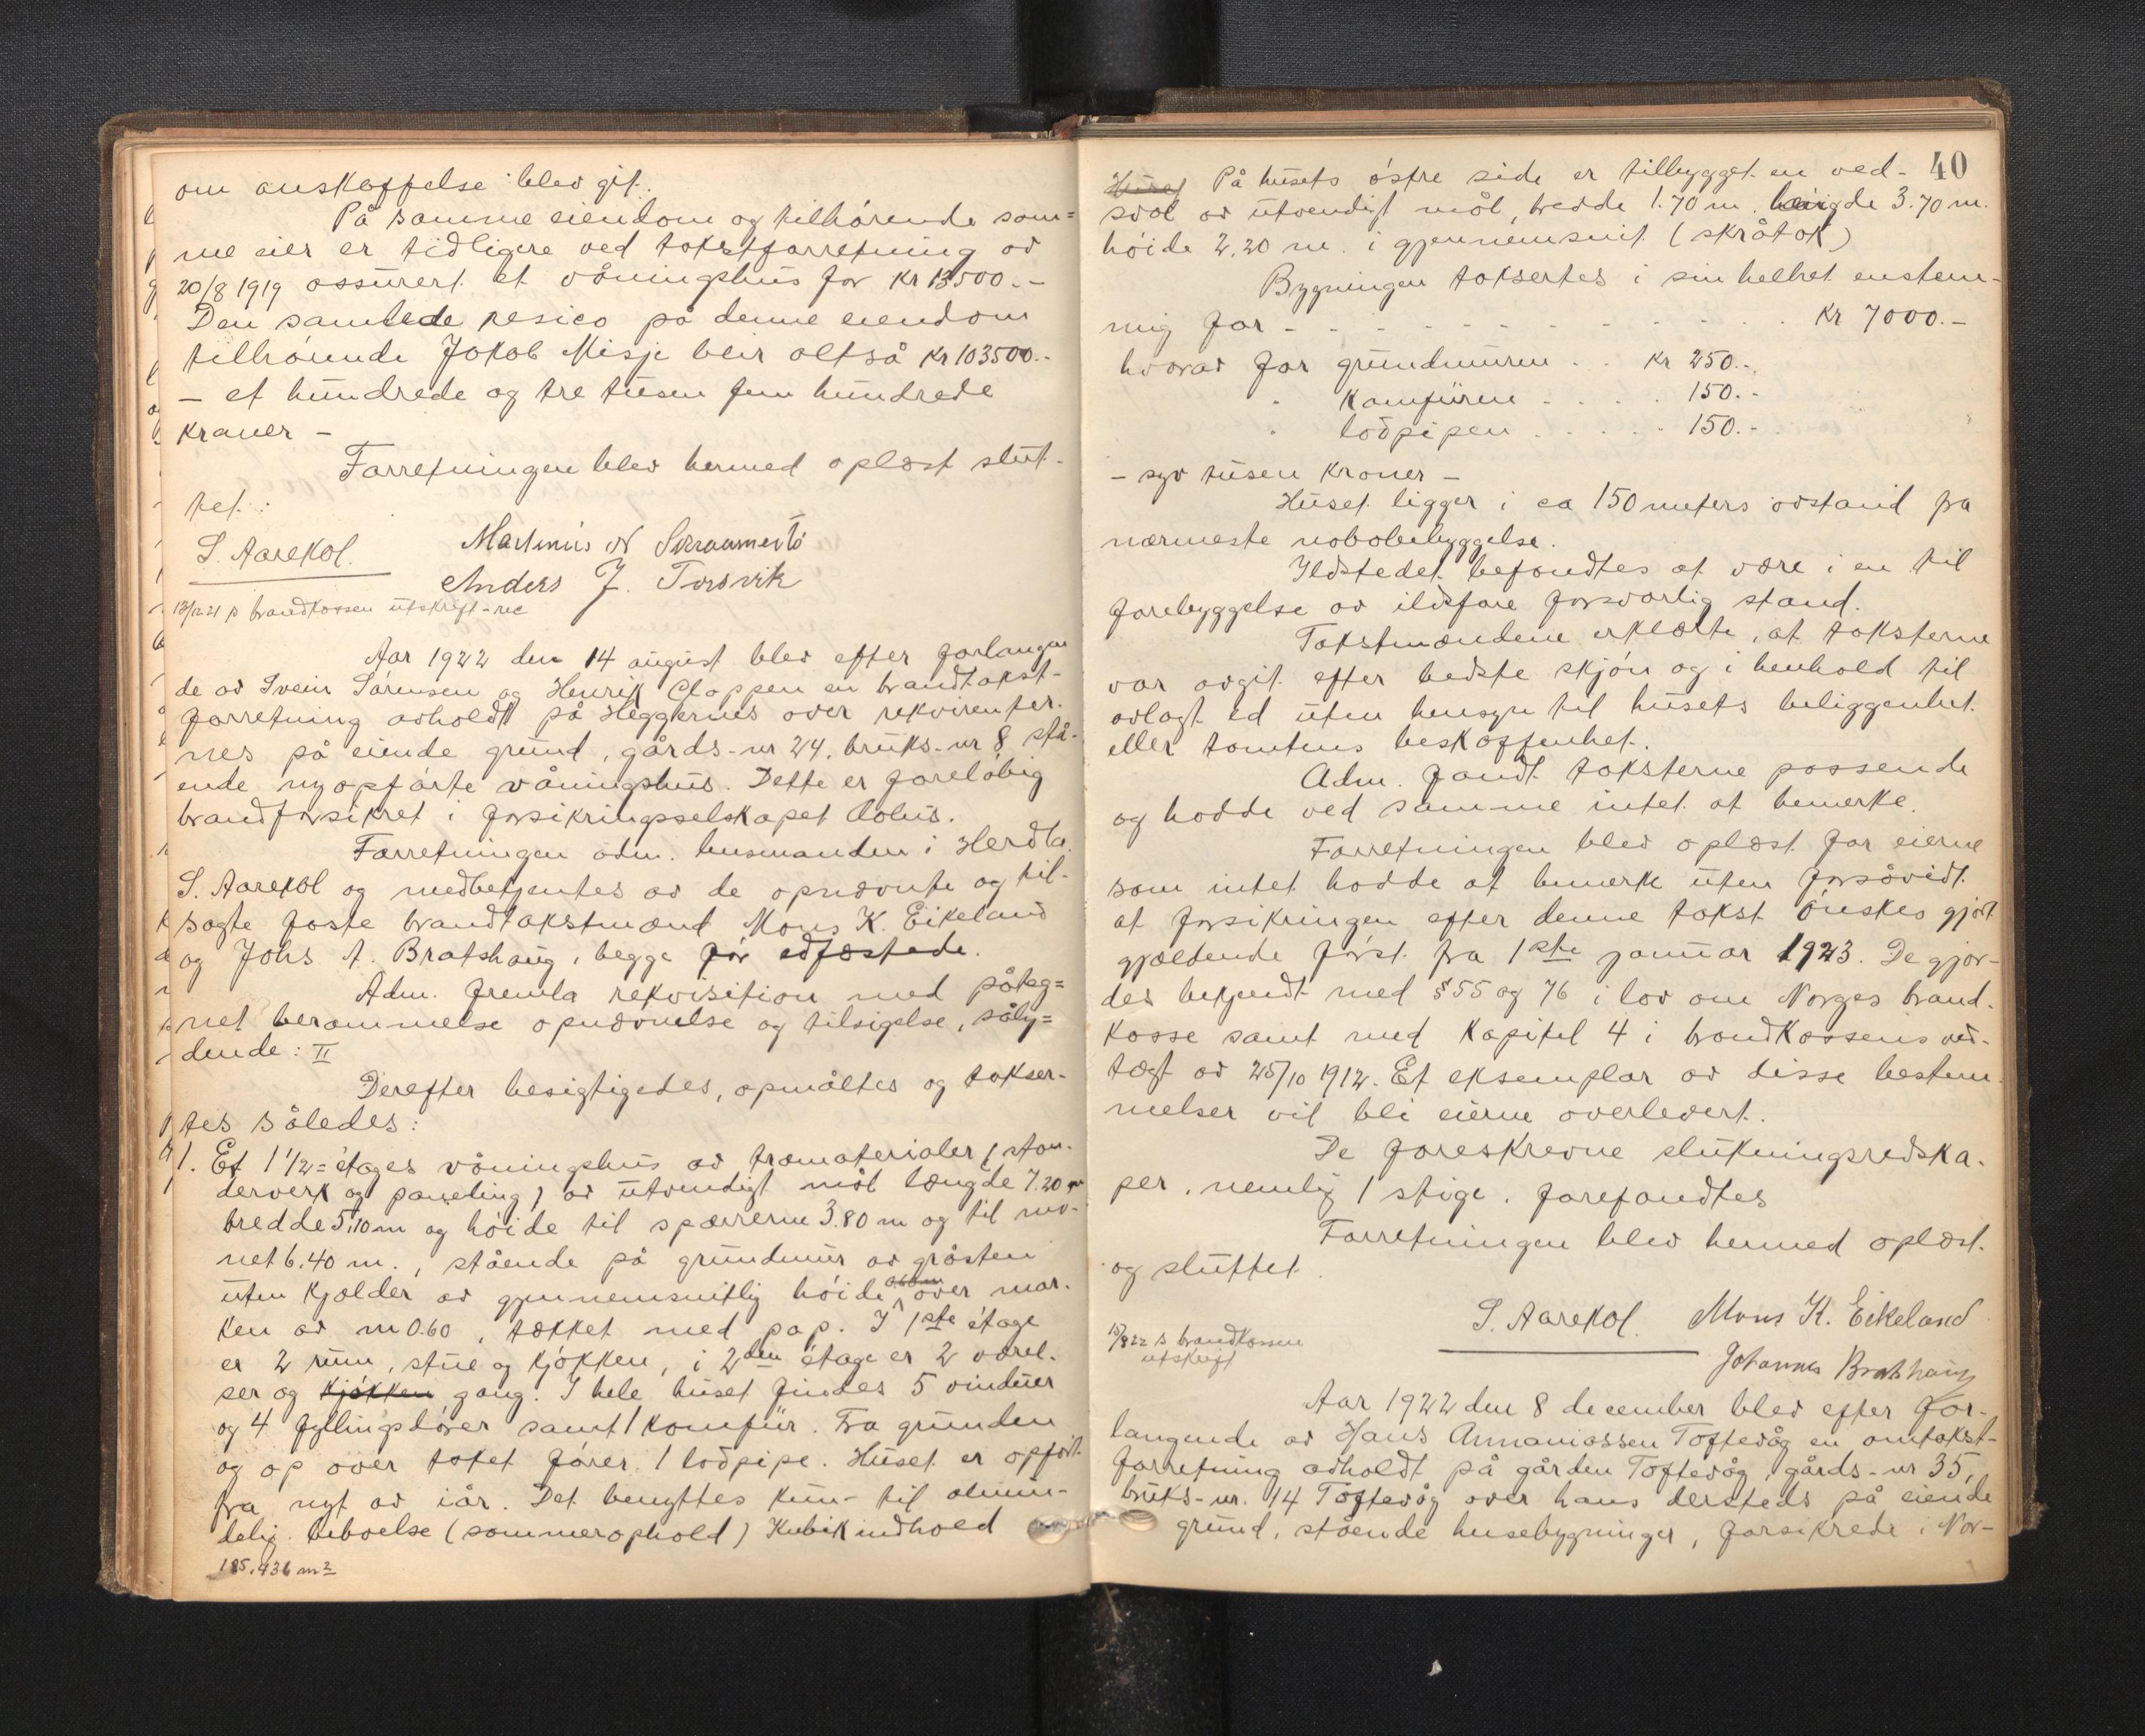 om anskaffelse blev git.
På samme eiendom og tilhörende sam=
me eier er tidligere ved takstforretning av
20/8 1919 assurert et våningshus for kr 13500.-
Den samlede resico på denne eiendom
tilhörende Jakob Misje blir altså kr 103500.-
- et hundrede og tre tusen fem hundrede
kroner -
Forretningen blev hermed oplæst slut-
tet.
S. Aarekol. Martinius N Skraamestö
Anders J. Torsvik
13/12 21 s brandkassen utskrift - rec
Aar 1922 den 14 august blev efter forlangen
de av Svein Sörensen og Henrik Cloppen en brandtakst-
forretning avholdt på Heggernes over rekvirenter-
nes på eiende grund, gårds-nr 24, bruks-nr 8 stå-
ende nyopförte våningshus. Dette er foreløbig
brandforsikret i forsikringsselskapet Æolus.
Forretningen adm. lensmanden i Herdla
S. Aarekol og medbetjentes av de opnævnte og til-
sagte faste brandtakstmænd Mons K. Eikeland
og Johs A. Bratshaug, begge før edfæstede.
Adm. fremla rekvisition med påteg=
net berammelse opnævnelse og tilsigelse, såly=
dende: II
Derefter besigtigedes, opmåltes og takser-
tes således:
1. Et 1 1/2= étages våningshus av træmaterialer (stan-
derverk og paneling) av utvendigt mål længde 7.20 m
bredde 5.10 m og höide til spærrerne 3.80 m og til mö-
net 6.40 m., stående på grundmur av gråsten
uten kjælder av gjennemsnitlig höide over mar-
ken av m 0.60, tækket med pap. I 1ste étage
er 2 rum, stue og kjökken, i 2den étage er 2 værel-
ser og kjökken gang. I hele huset findes 5 vinduer
og 4 fyllingsdörer samt 1 komfur. Fra grunden
og op over taket förer 1 lodpipe. Huset er opfört
fra nyt av iår. Det benyttes kun til almin-
delig beboelse (sommerophold) Kubikindhold
185.436 m3
40
Huset På husets östre side er tilbygget en ved-
sval av utvendigt mål, bredde 1.70 m. længde 3.70 m.
höide 2.20 m. i gjennemsnit (skråtak)
Bygningen taksertes i sin helhet enstem-
mig for - - - - - - - kr 7000.-
hvorav for grundmuren . . kr 250.-
" komfuren . . . . 150.-
" lodpipen . . . . . 150.-
- syv tusen kroner -
Huset ligger i ca 150 meters avstand fra
nærmeste nabobebyggelse.
Ildstedet befandtes at være i en til
forebyggelse av ildsfare forsvarlig stand.
Takstmændene erklærte, at taksterne
var avgit efter bedste skjön og i henhold til
avlagt ed uten hensyn til husets beliggenhet
eller tomtens beskaffenhet.
Adm. fandt taksterne passende
og hadde ved samme intet at bemerke.
Forretningen blev oplæst for eierne
som intet hadde at bemerke uten forsåvidt
at forsikringen efter denne takst önskes gjort
gjældende först fra 1ste januar 1923. De gjor-
des bekjendt med § 55 og 76 i lov om Norges brand-
kasse samt med kapitel 4 i brandkassens ved-
tægt av 25/10 1912. Et eksemplar av disse bestem-
melser vil bli eierne overlevert.
De foreskrevne slukningsredska-
per, nemlig 1 stige, forefandtes
Forretningen blev hermed oplæst
og sluttet.
S. Aarekol. Mons K. Eikeland
15/8 22 s brandkassen
utskrift
Johannes Bratshaug
Aar 1922 den 8 december blev efter for-
langende av Hans Annaniassen Toftevåg en omtakst-
forretning avholdt på gården Toftevåg, gårds-nr 35,
bruks-nr. 14 Toftevåg over hans dersteds på eiende
grund, stående husebygninger, forsikrede i Nor-